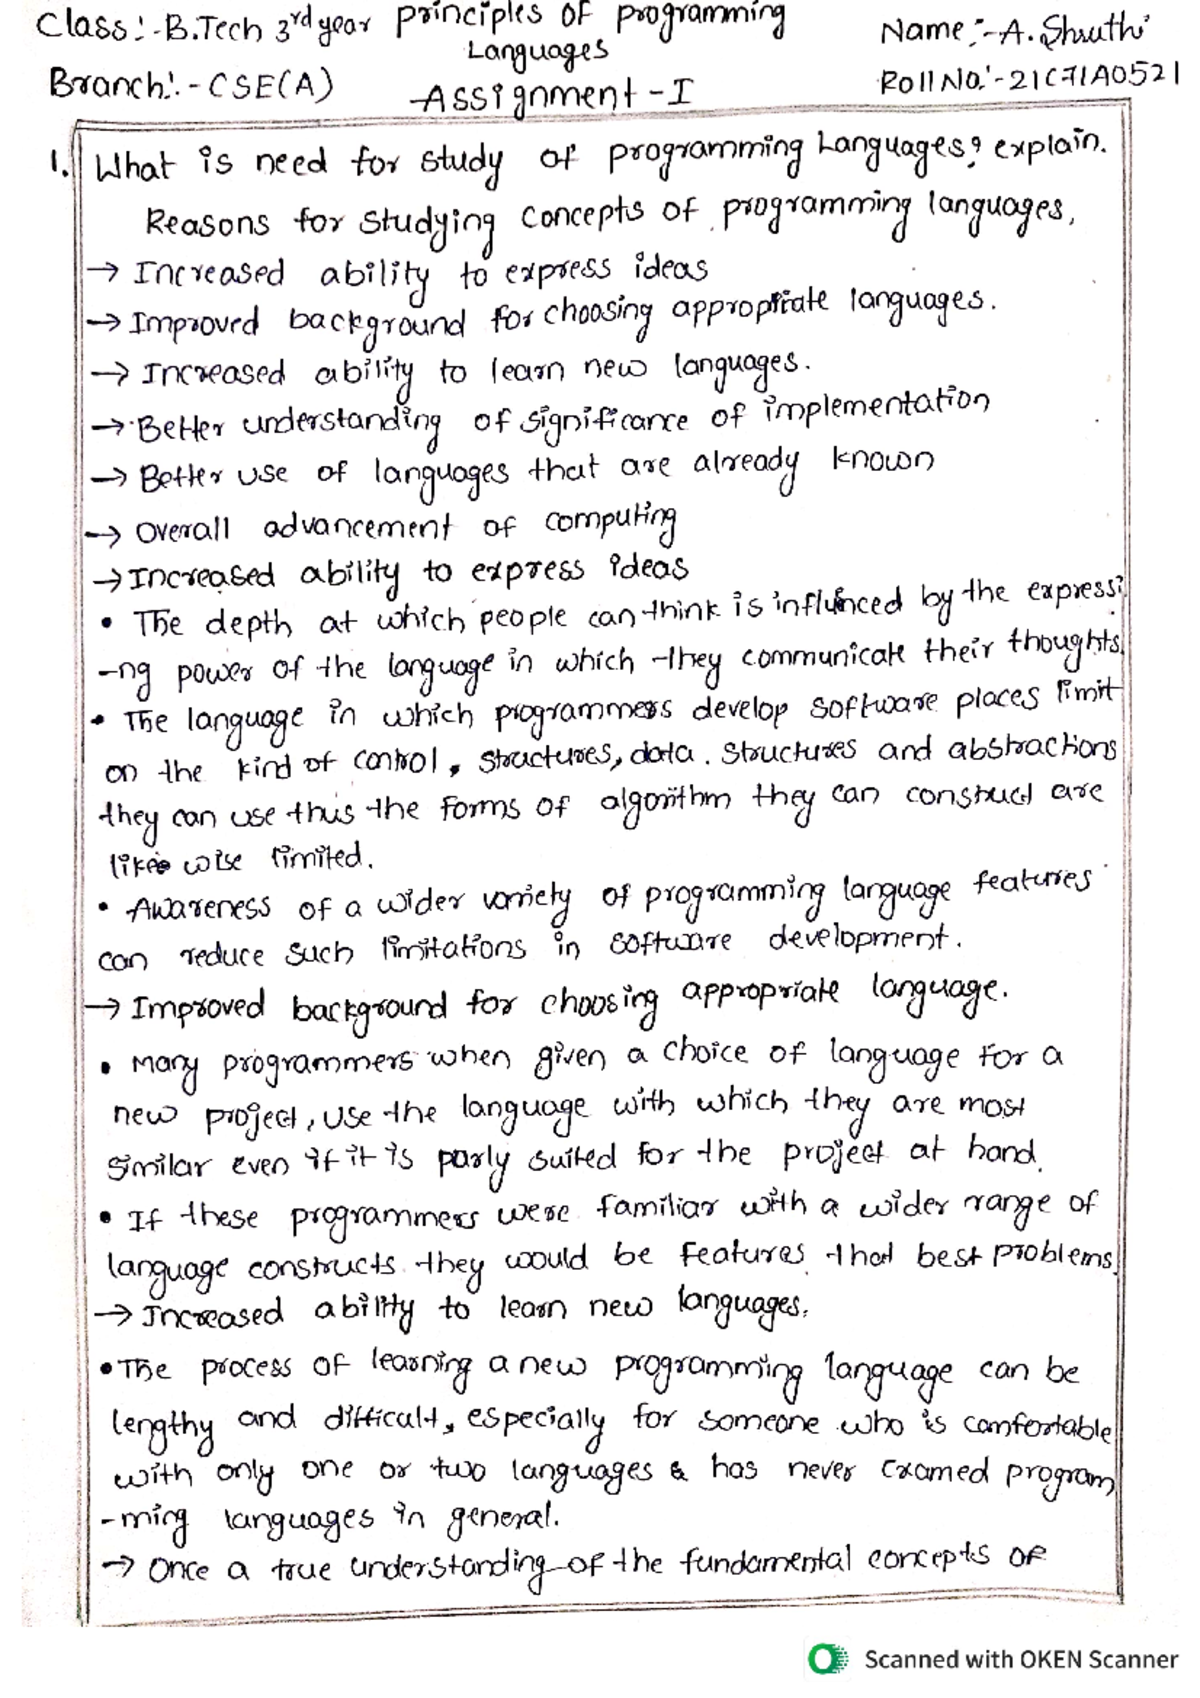 Class:-B.Tech 3rd year principles of programming Languages Name:-A.Shruthi
Branch:-CSE(A) Assignment-I Roll No:-21C71A0521
1. What is need for study of programming Languages? explain.
Reasons for studying concepts of programming languages,
→ Increased ability to express ideas
→ Improved background for choosing appropriate languages.
→ Increased ability to learn new languages.
→ Better understanding of significance of implementation
→ Better use of languages that are already known
→ Overall advancement of computing
→ Increased ability to express ideas
• The depth at which people can think is influnced by the expressi
-ng power of the language in which they communicate their thoughts.
• The language in which programmers develop software places limit
on the kind of control, structures, data. structures and abstractions
they can use thus the forms of algorithm they can construct are
like wise limited.
• Awareness of a wider variety of programming language features
can reduce such limitations in software development.
→ Improved background for choosing appropriate language.
• Many programmers when given a choice of language for a
new project, use the language with which they are most
similar even if it is parly suited for the project at hand.
• If these programmers were familiar with a wider range of
language constructs they would be features that best problems.
→ Increased ability to learn new languages.
• The process of learning a new programming language can be
lengthy and difficult, especially for someone who is comfortable
with only one or two languages & has never examed program
-ming languages in general.
→ Once a true understanding of the fundamental concepts of
Scanned with OKEN Scanner